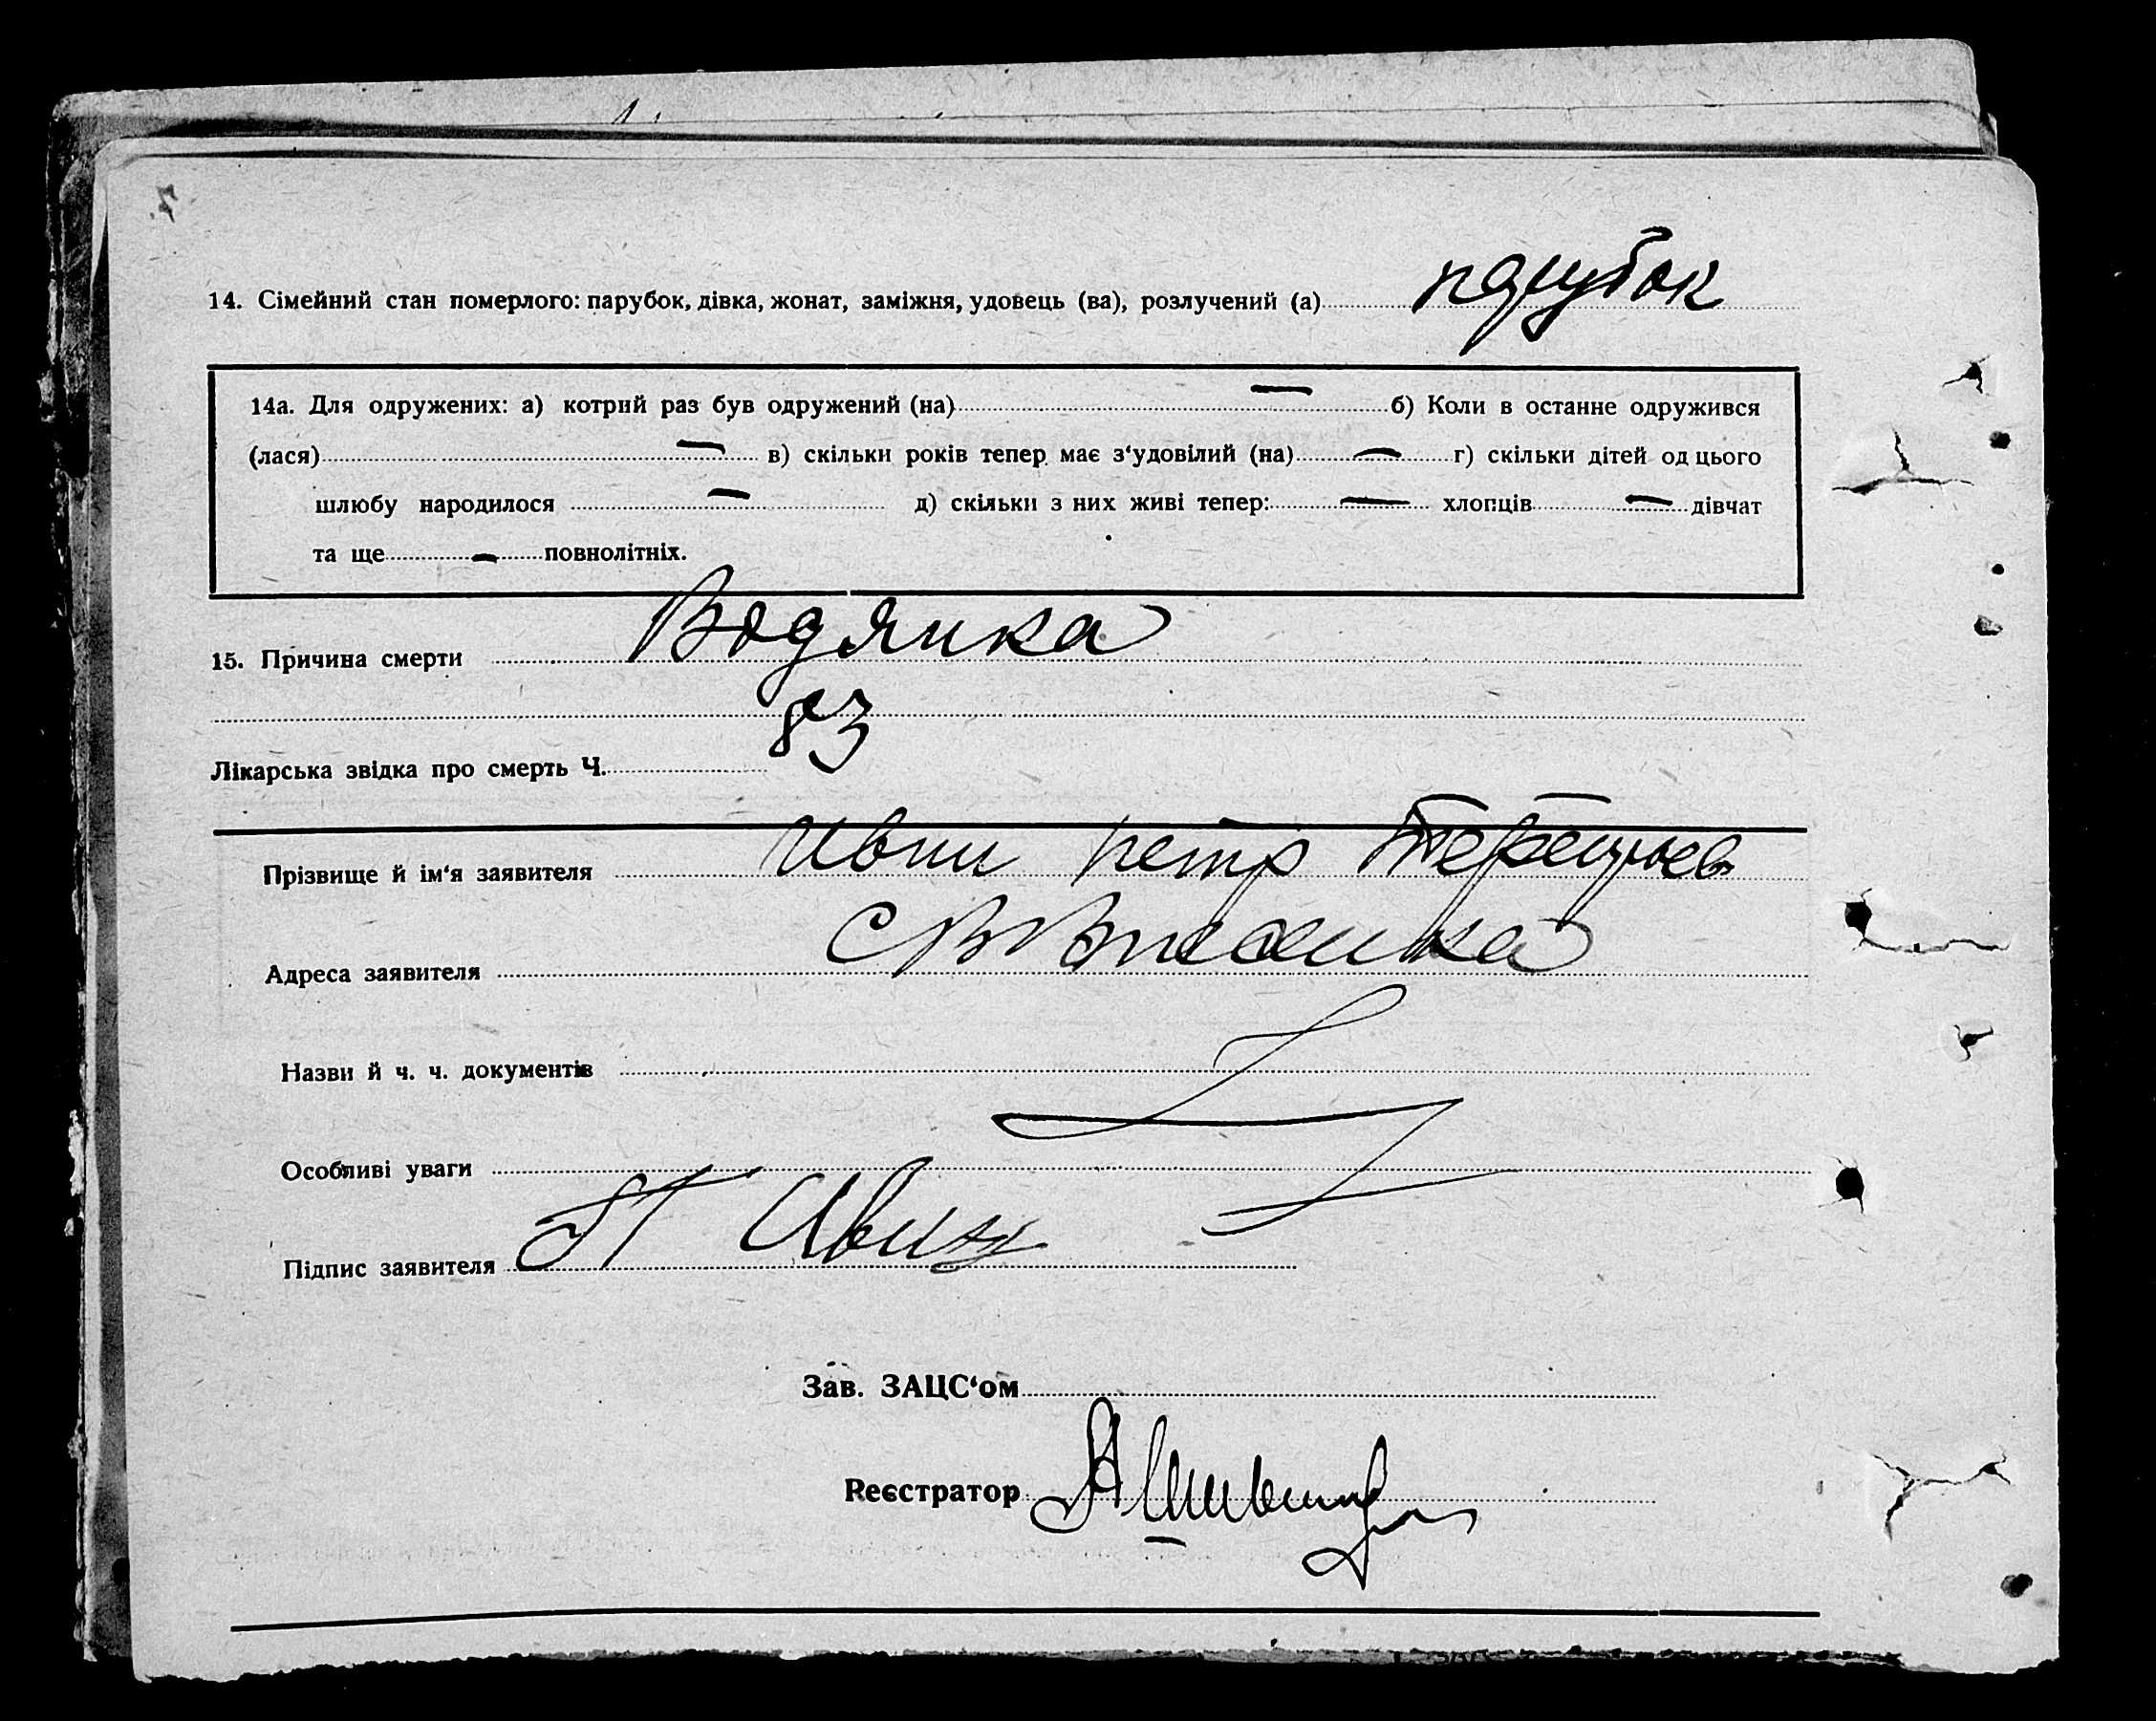 14. Сімейний стан померлого: парубок, дівка, жонат, заміжня, удовець (ва), розлучений (а) парубок
14а. Для одружених: а) котрий раз був одружений (на) — б) Коли в останне одружився
(лася) — в) скільки років тепер має з‘удовілий (на) — г) скільки дітей од цього
шлюбу народилося — д) скільки з них живі тепер: — хлопців — дівчат
та ще — повнолітніх.
15. Причина смерти Водянка
83
Лікарська звідка про смерть Ч.
Прізвище й ім‘я заявителя Петр
Адреса заявителя
Назви й ч. ч. документів
Особливі уваги
Підпис заявителя
Зав. ЗАЦС‘ом
Реєстратор